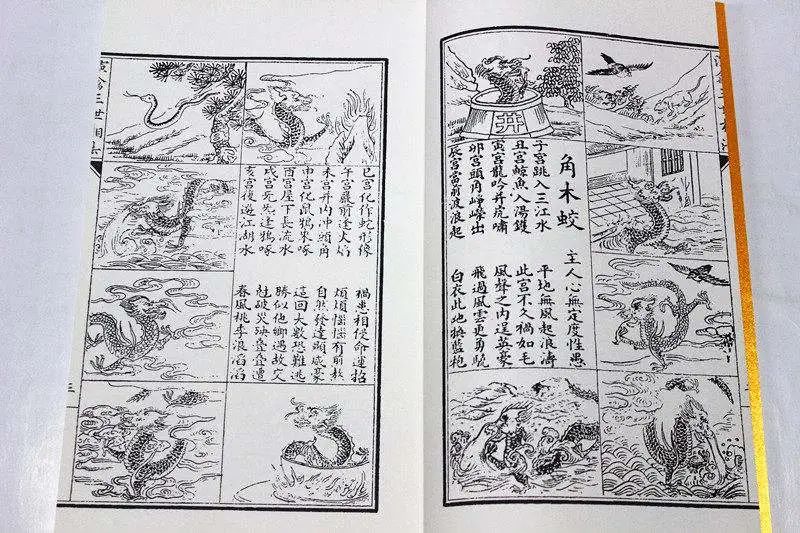 井
角木蛟
主人心無定度性愚
子宮跳入三江水
平地無風起浪濤
丑宮鯨魚入湯鑊
此宮不久禍如毛
寅宮龍吟并虎嘯
風聲之內逞英豪
卯宮頭角崢嶸出
飛過風雲更勇驍
辰宮當前波浪起
白衣此地換藍袍
巳宮化作蛇形像
禍患相侵命運招
午宮巖前逢火焰
煩煩惱惱有前
未宮井內冲頭角
自然發達顯威豪
申宮化鼠鴉來啄
這回大數恐難逃
酉宮屋下長流水
勝似他鄉遇故交
戌宮逢鴉啄
破災殃疊疊遭
亥宮後遊江湖水
春風桃李浪滔滔
演禽三世相法
三